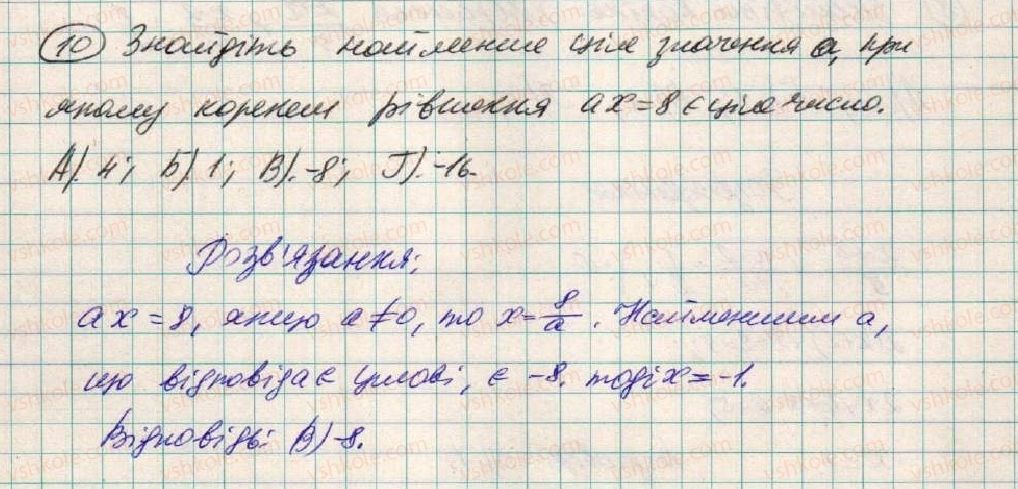 10 Знайдіть найменше ціле значення a, при
якому коренем рівняння ax=8 є ціле число.
А). 4; Б). 1; В). -8; Г). -16.
Розв'язання:
ax=8, якщо a≠0, то x=8/a. Найменшим a,
що відповідає умові, є -8. тоді x=-1.
Відповідь: В) -8.